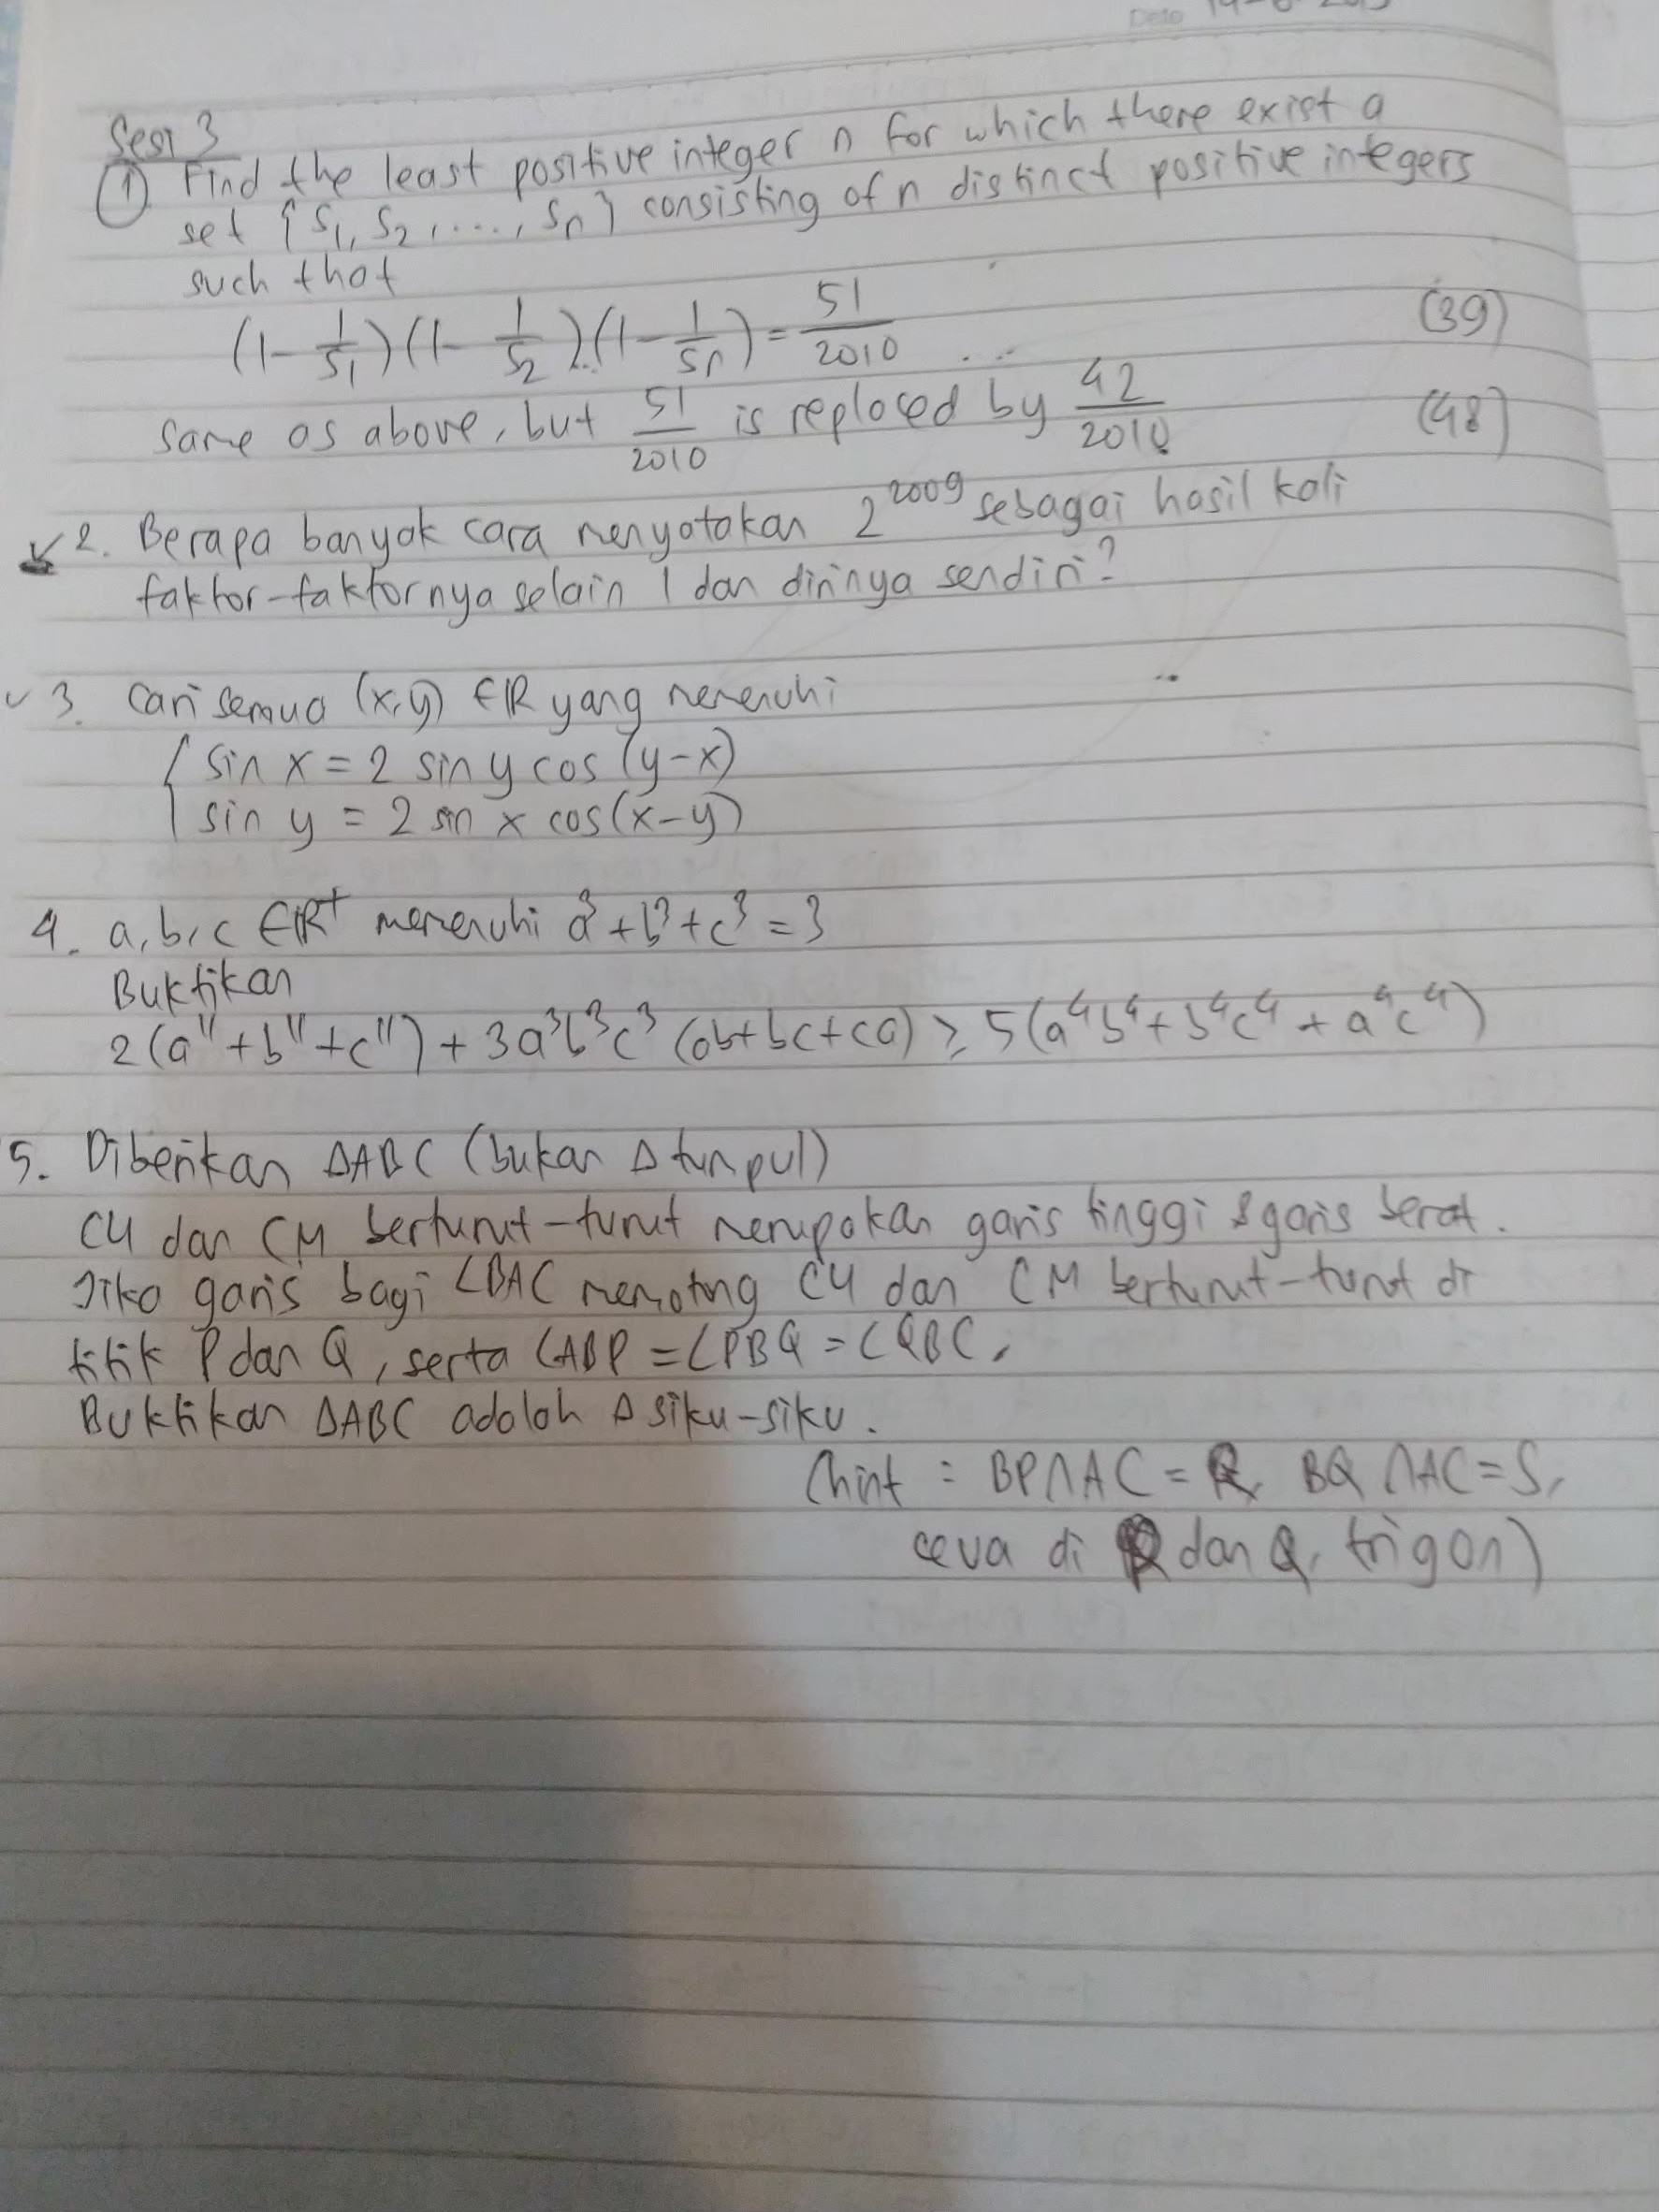 Date 14-6-2015
Sesi 3
① Find the least positive integer n for which there exist a
set {S₁, S₂, ...., Sₙ} consisting of n distinct positive integers
such that
(1 - 1/S₁)(1 - 1/S₂)...(1 - 1/Sₙ) = 51/2010 ... (39)
same as above, but 51/2010 is replaced by 42/2010. (48)
2. Berapa banyak cara menyatakan 2²⁰⁰⁹ sebagai hasil kali
faktor-faktornya selain 1 dan dirinya sendiri?
3. Cari semua (x,y) ∈ ℝ yang memenuhi
{ sin x = 2 sin y cos (y-x)
sin y = 2 sin x cos(x-y)
4. a, b, c ∈ ℝ⁺ memenuhi a³ + b³ + c³ = 3
Buktikan
2(a¹¹ + b¹¹ + c¹¹) + 3a³b³c³ (ab+bc+ca) ≥ 5(a⁴b⁴ + b⁴c⁴ + a⁴c⁴)
5. Diberikan ΔABC (bukan Δ tumpul)
CH dan CM berturut-turut merupakan garis tinggi & garis berat.
Jika garis bagi ∠BAC memotong CH dan CM berturut-turut di
titik P dan Q, serta ∠ABP = ∠PBQ = ∠QBC,
Buktikan ΔABC adalah Δ siku-siku.
(hint : BP∩AC = R, BQ∩AC = S,
ceva di P dan Q, trigon)